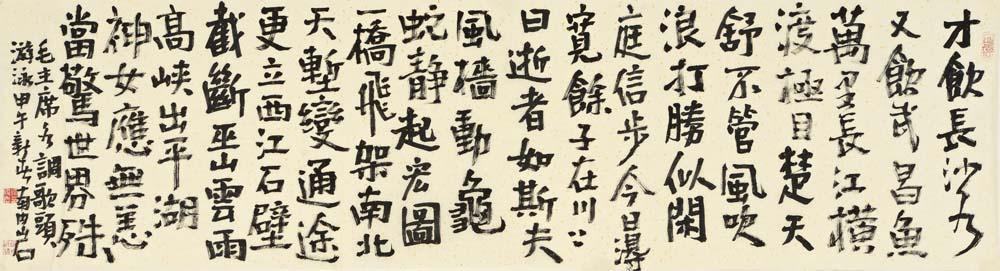 才飲長沙水
又飲武昌魚
萬里長江橫
渡極目楚天
舒不管風吹
浪打勝似閑
庭信步今日得
寬餘子在川上
曰逝者如斯夫
風檣動龜
蛇静起宏圖
一橋飛架南北
天塹變通途
更立西江石壁
截斷巫山雲雨
高峽出平湖
神女應無恙
當驚世界殊
毛主席水調歌頭
游泳甲午新春